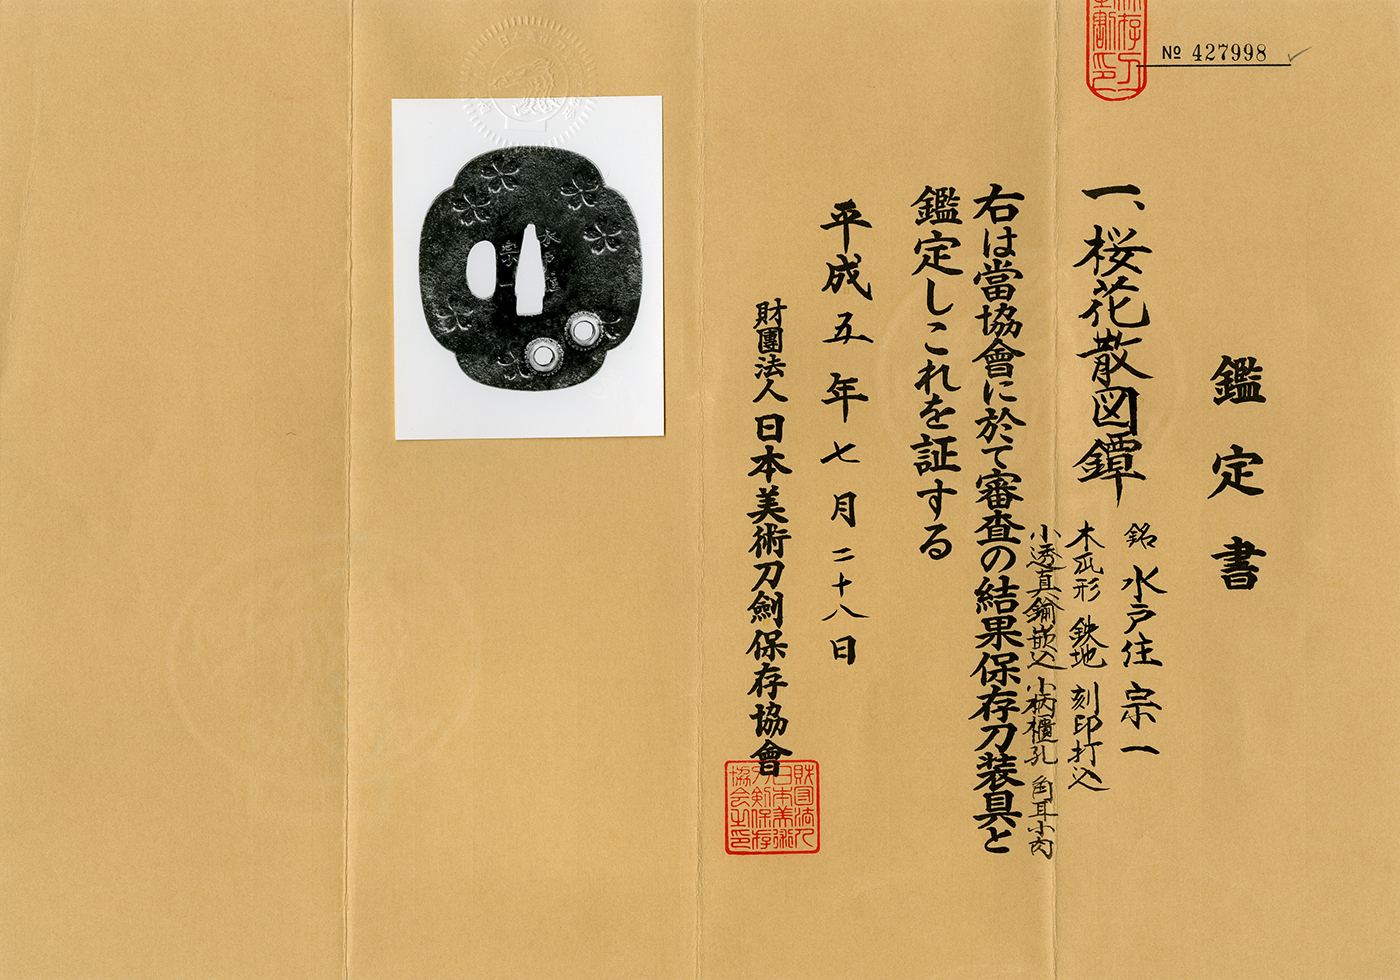 № 427998
鑑定書
一、桜花散図鐔
銘 水戸住 宗一
木瓜形 鉄地 刻印打込
小透真鍮嵌込 小柄櫃孔 角耳小肉
右は當協會に於て審査の結果保存刀装具と
鑑定しこれを証する
平成五年七月二十八日
財團法人 日本美術刀劍保存協會
財団法人
日本美術
刀剣保存
協会之印
水戸住
宗一